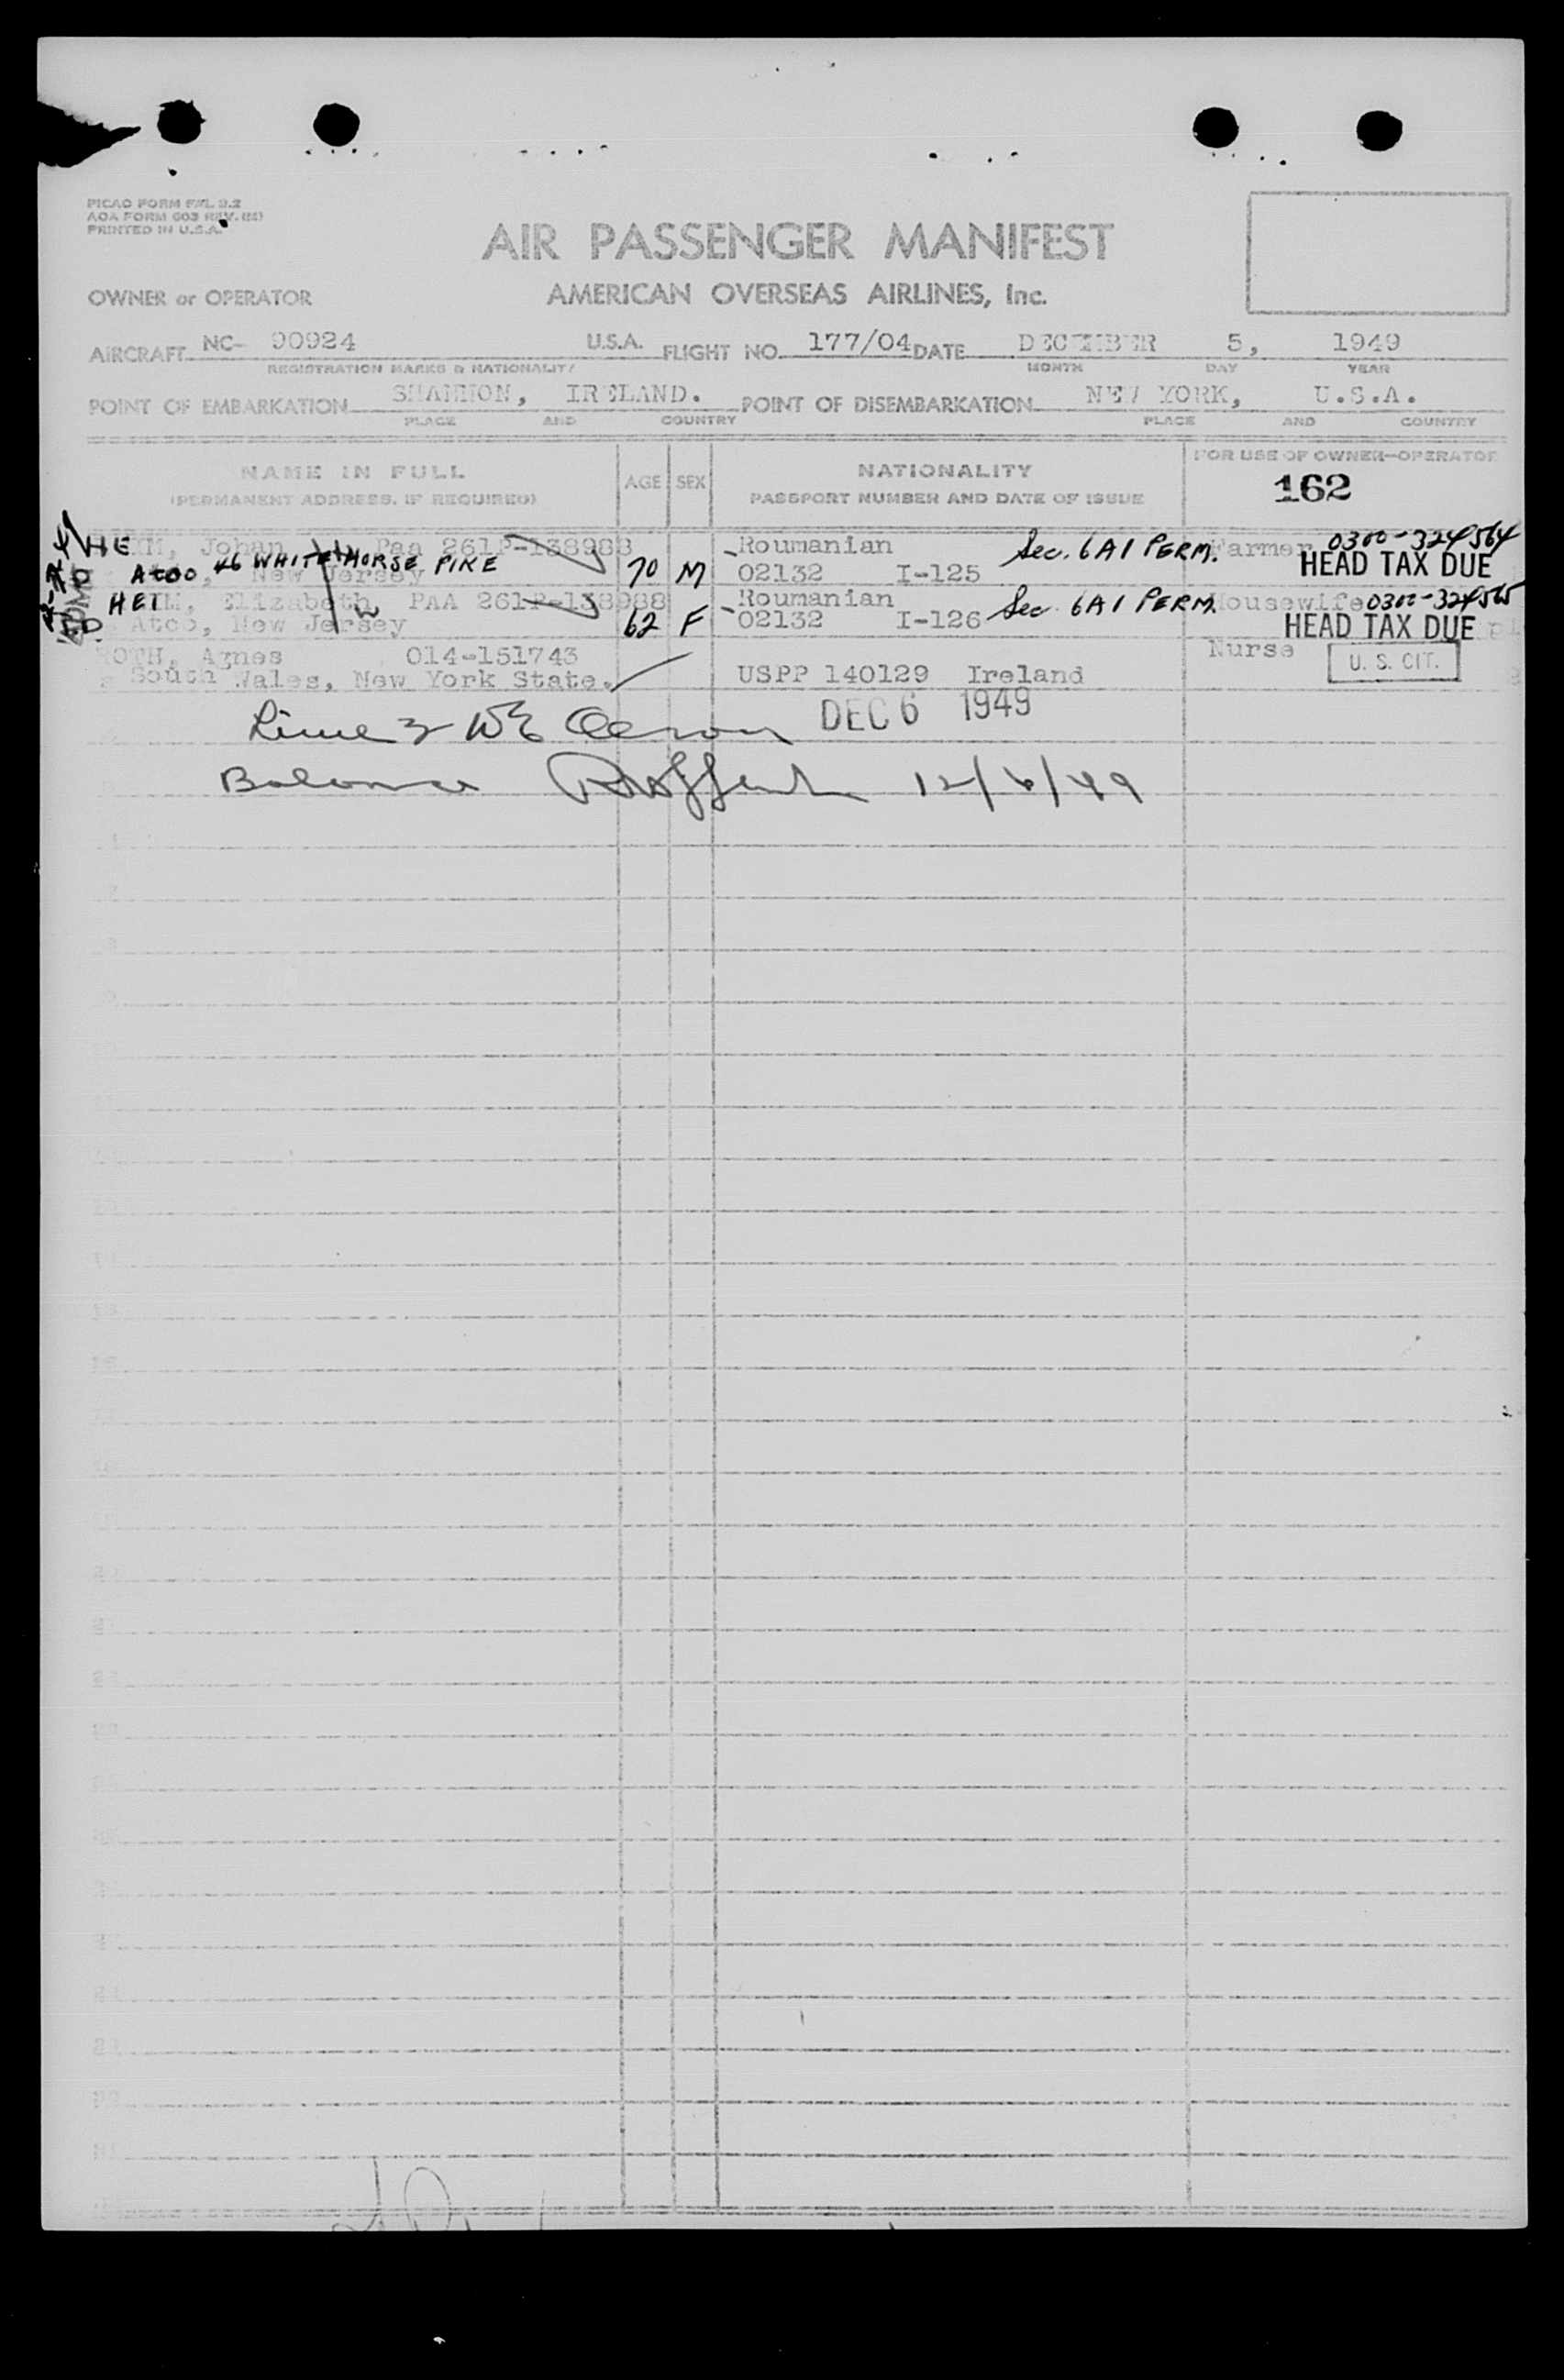 PICAO FORM FAL 2.2
AOA FORM 603 REV.
PRINTED IN U.S.A.
AIR PASSENGER MANIFEST
OWNER or OPERATOR AMERICAN OVERSEAS AIRLINES, Inc.
AIRCRAFT NC- 90924 U.S.A. FLIGHT NO. 177/04 DATE DECEMBER 5, 1949
REGISTRATION MARKS & NATIONALITY MONTH DAY YEAR
POINT OF EMBARKATION SHANNON, IRELAND. POINT OF DISEMBARKATION NEW YORK, U.S.A.
PLACE AND COUNTRY PLACE AND COUNTRY
NAME IN FULL AGE SEX NATIONALITY FOR USE OF OWNER-OPERATOR
(PERMANENT ADDRESS, IF REQUIRED) PASSPORT NUMBER AND DATE OF ISSUE 162
HEIM, Johan Paa 261P-138988 Roumanian Sec. 6A1 PERM. Farmer 0300-324564
Atco, 46 WHITE HORSE PIKE New Jersey 70 M 02132 I-125 HEAD TAX DUE
HEIM, Elizabeth PAA 261P-138988 Roumanian Sec. 6A1 PERM. Housewife 0300-324565
Atco, New Jersey 62 F 02132 I-126 HEAD TAX DUE
ROTH, Agnes 014-151743 Nurse U. S. CIT.
South Wales, New York State. USPP 140129 Ireland
Line 3 DEC 6 1949
Balance 12/6/49